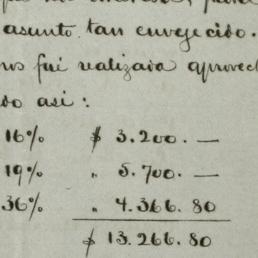 asunto tan envejecido.
fué realizada
así:
16% $ 3.200.—
19% " 5.700.—
36% " 4.366.80
$ 13.266.80